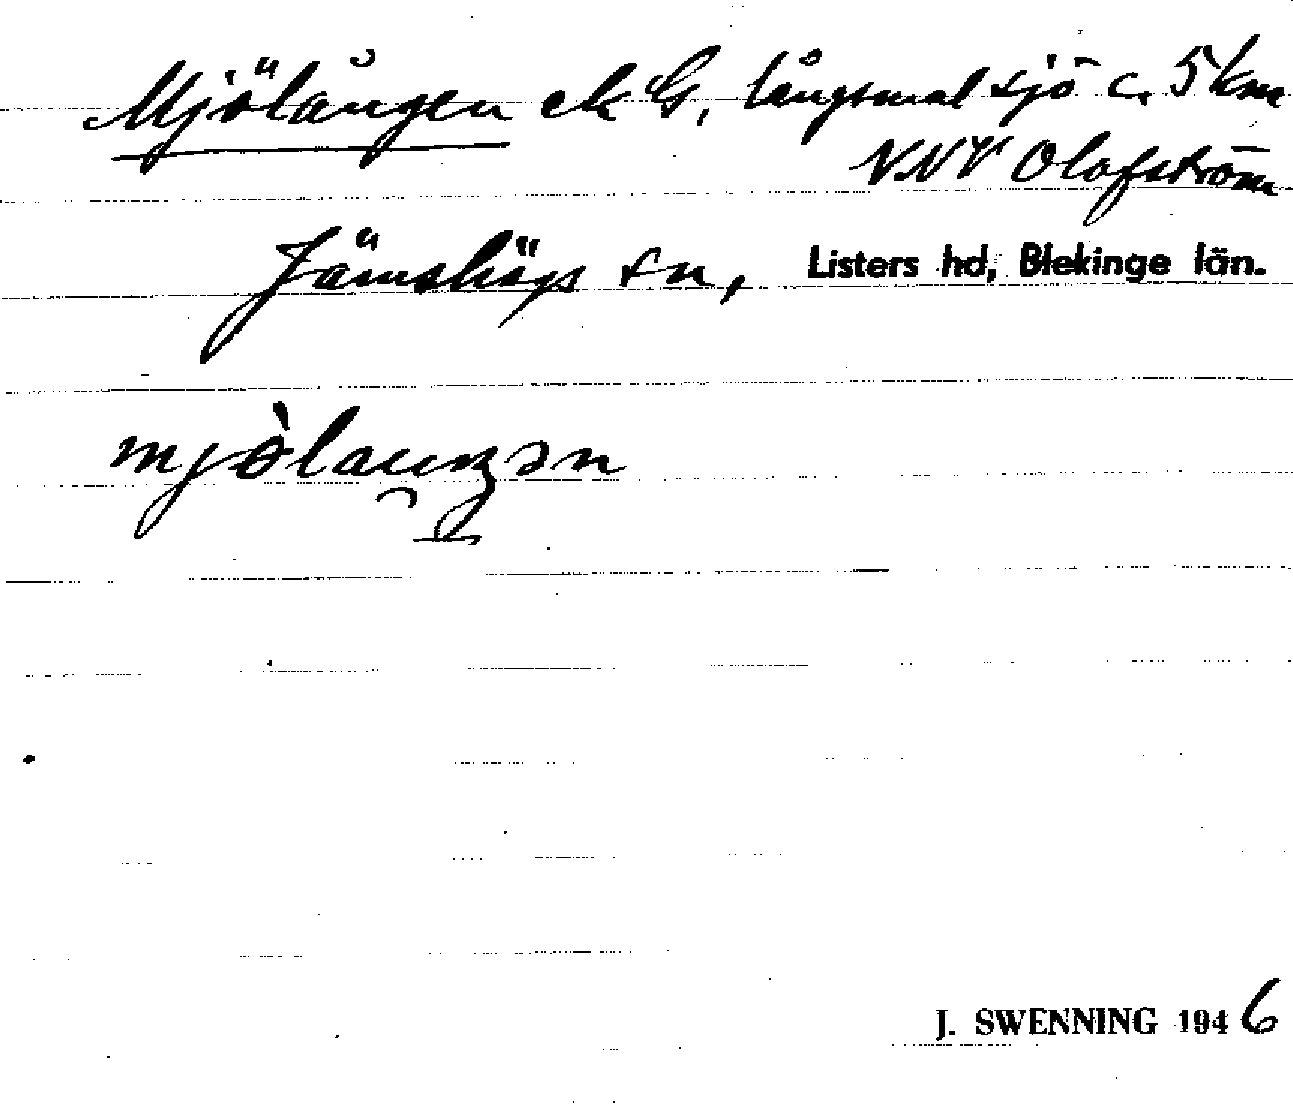 Mjölången ek G, långsmal sjö c. 5 km
VNV Olofström
Jämshögs sn, Listers hd, Blekinge län.
J. SWENNING 1946